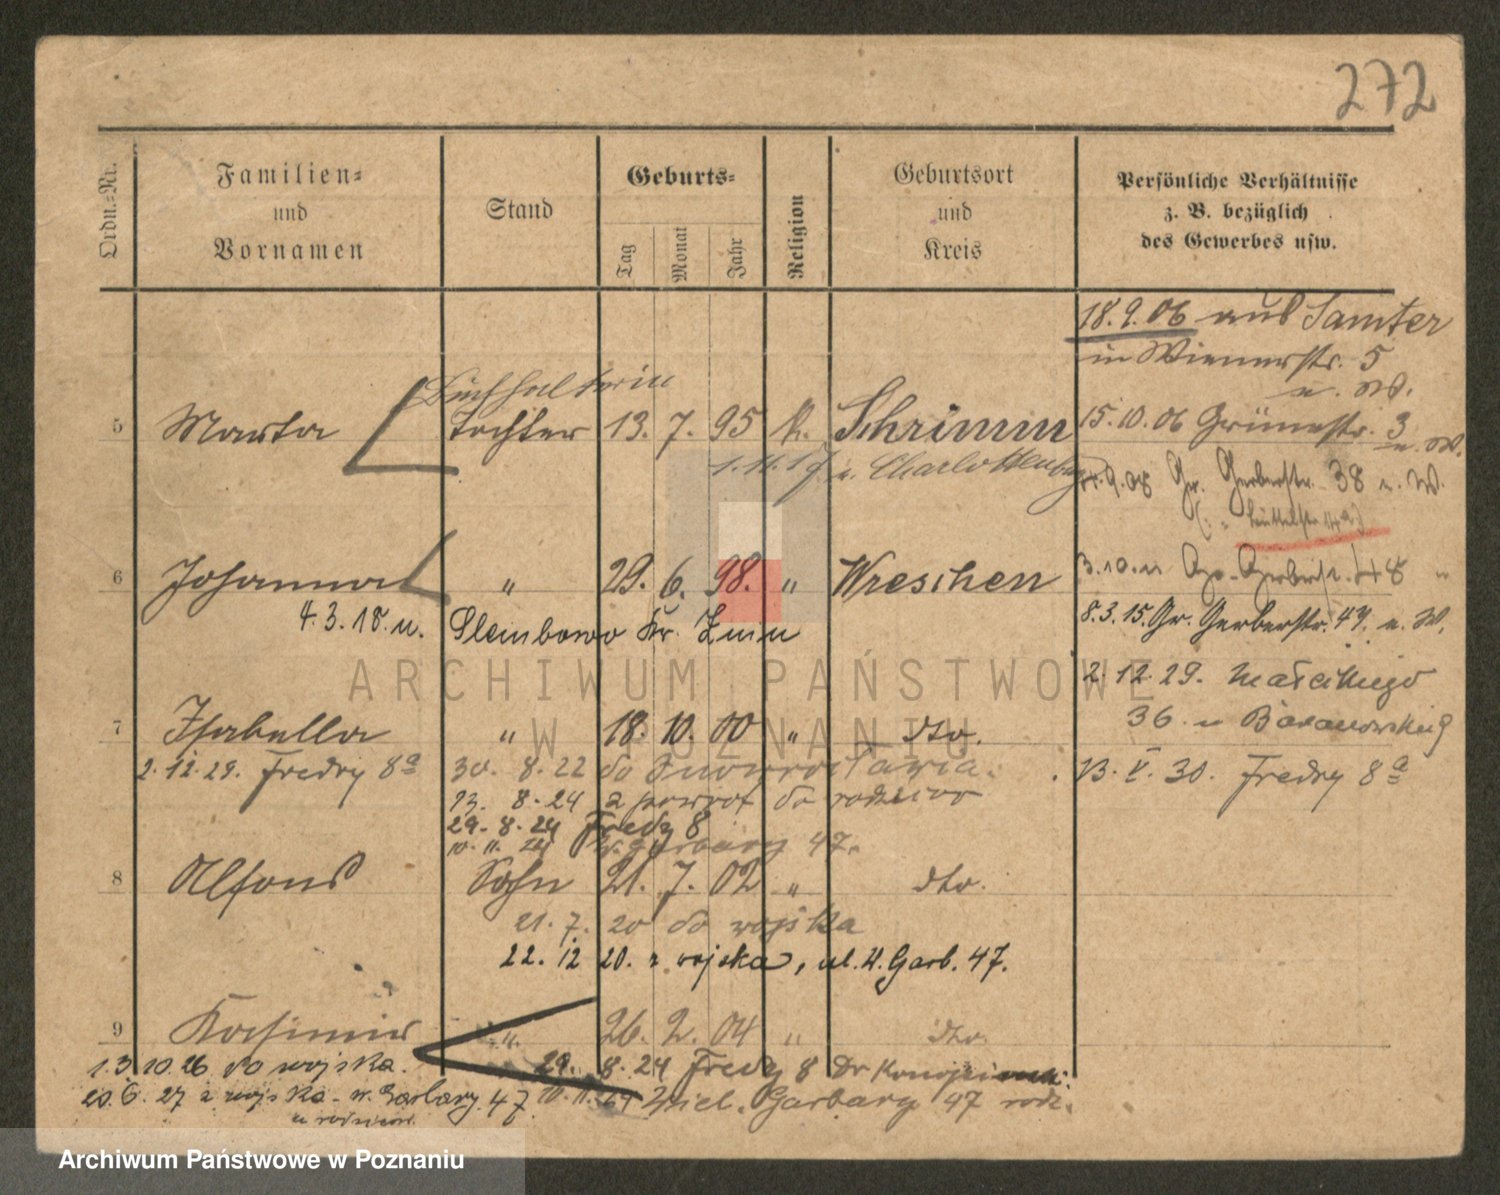 272
Ordn.-Nr.
Familien-
und
Vornamen
Stand
Geburts-
Tag
Monat
Jahr
Religion
Geburtsort
und
Kreis
Persönliche Verhältnisse
z. B. bezüglich
des Gewerbes usw.
18.9.06 aus Samter
in Wienerstr. 5
u. W.
Buchhalterin
5 Marta Tochter 13. 7. 95 k. Schrimm
15.10.06 Grünestr. 3 u. W.
1.11.17 n. Charlottenburg
9.08 Gr. Gerberstr. 38 u. W.
6 Johanna " 29. 6. 98. " Wreschen
3.10.11 Gr. Gerberstr. 48
4.3.18 n. Slembowo Kr. Znin
8.3.15. Gr. Gerberstr. 47. u. W.
2.12.29. Małeckiego
36 u Baranowskiej
7 Isabella " 18. 10. 00 " dto.
2.12.29. Fredry 8a 30. 8.22 do Inowrocławia.
13. V. 30. Fredry 8a
13. 8.24 z powrot do rodziców
29. 8.24 Fredry 8
10. 11. 24 W. Garbary 47.
8 Alfons Sohn 21. 7. 02 " dto.
21. 7. 20 do wojska
22. 12 20. z wojska, ul. W. Garb. 47.
9 Kasimir " 26. 2. 04 " dto.
13.10.26 do wojska. 29. 8.24 Fredry 8
20.6.27 z wojska - w. Garbary 47 10.11.24 Wiel. Garbary 47 rodz.
u rodziców.
ARCHIWUM PAŃSTWOWE
W POZNANIU
Archiwum Państwowe w Poznaniu